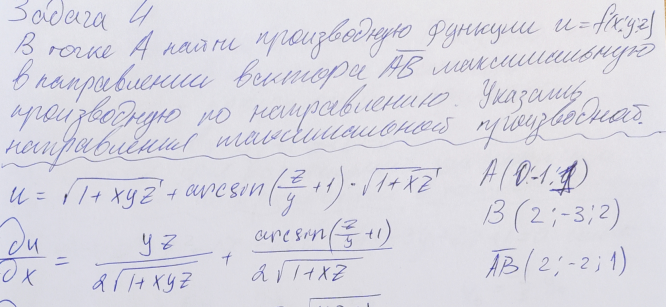 Задача 4
В точке A найти производную функции u=f(x;y;z)
в направлении вектора AB максимальную
производную по направлению. Указать
направления максимальной производной.
u = √(1+xyz) + arcsin(z/y + 1) · √(1+xz) A(0;-1;1)
B(2;-3;2)
∂u/∂x = yz/(2√(1+xyz)) + arcsin(z/y + 1)/(2√(1+xz)) AB(2;-2;1)